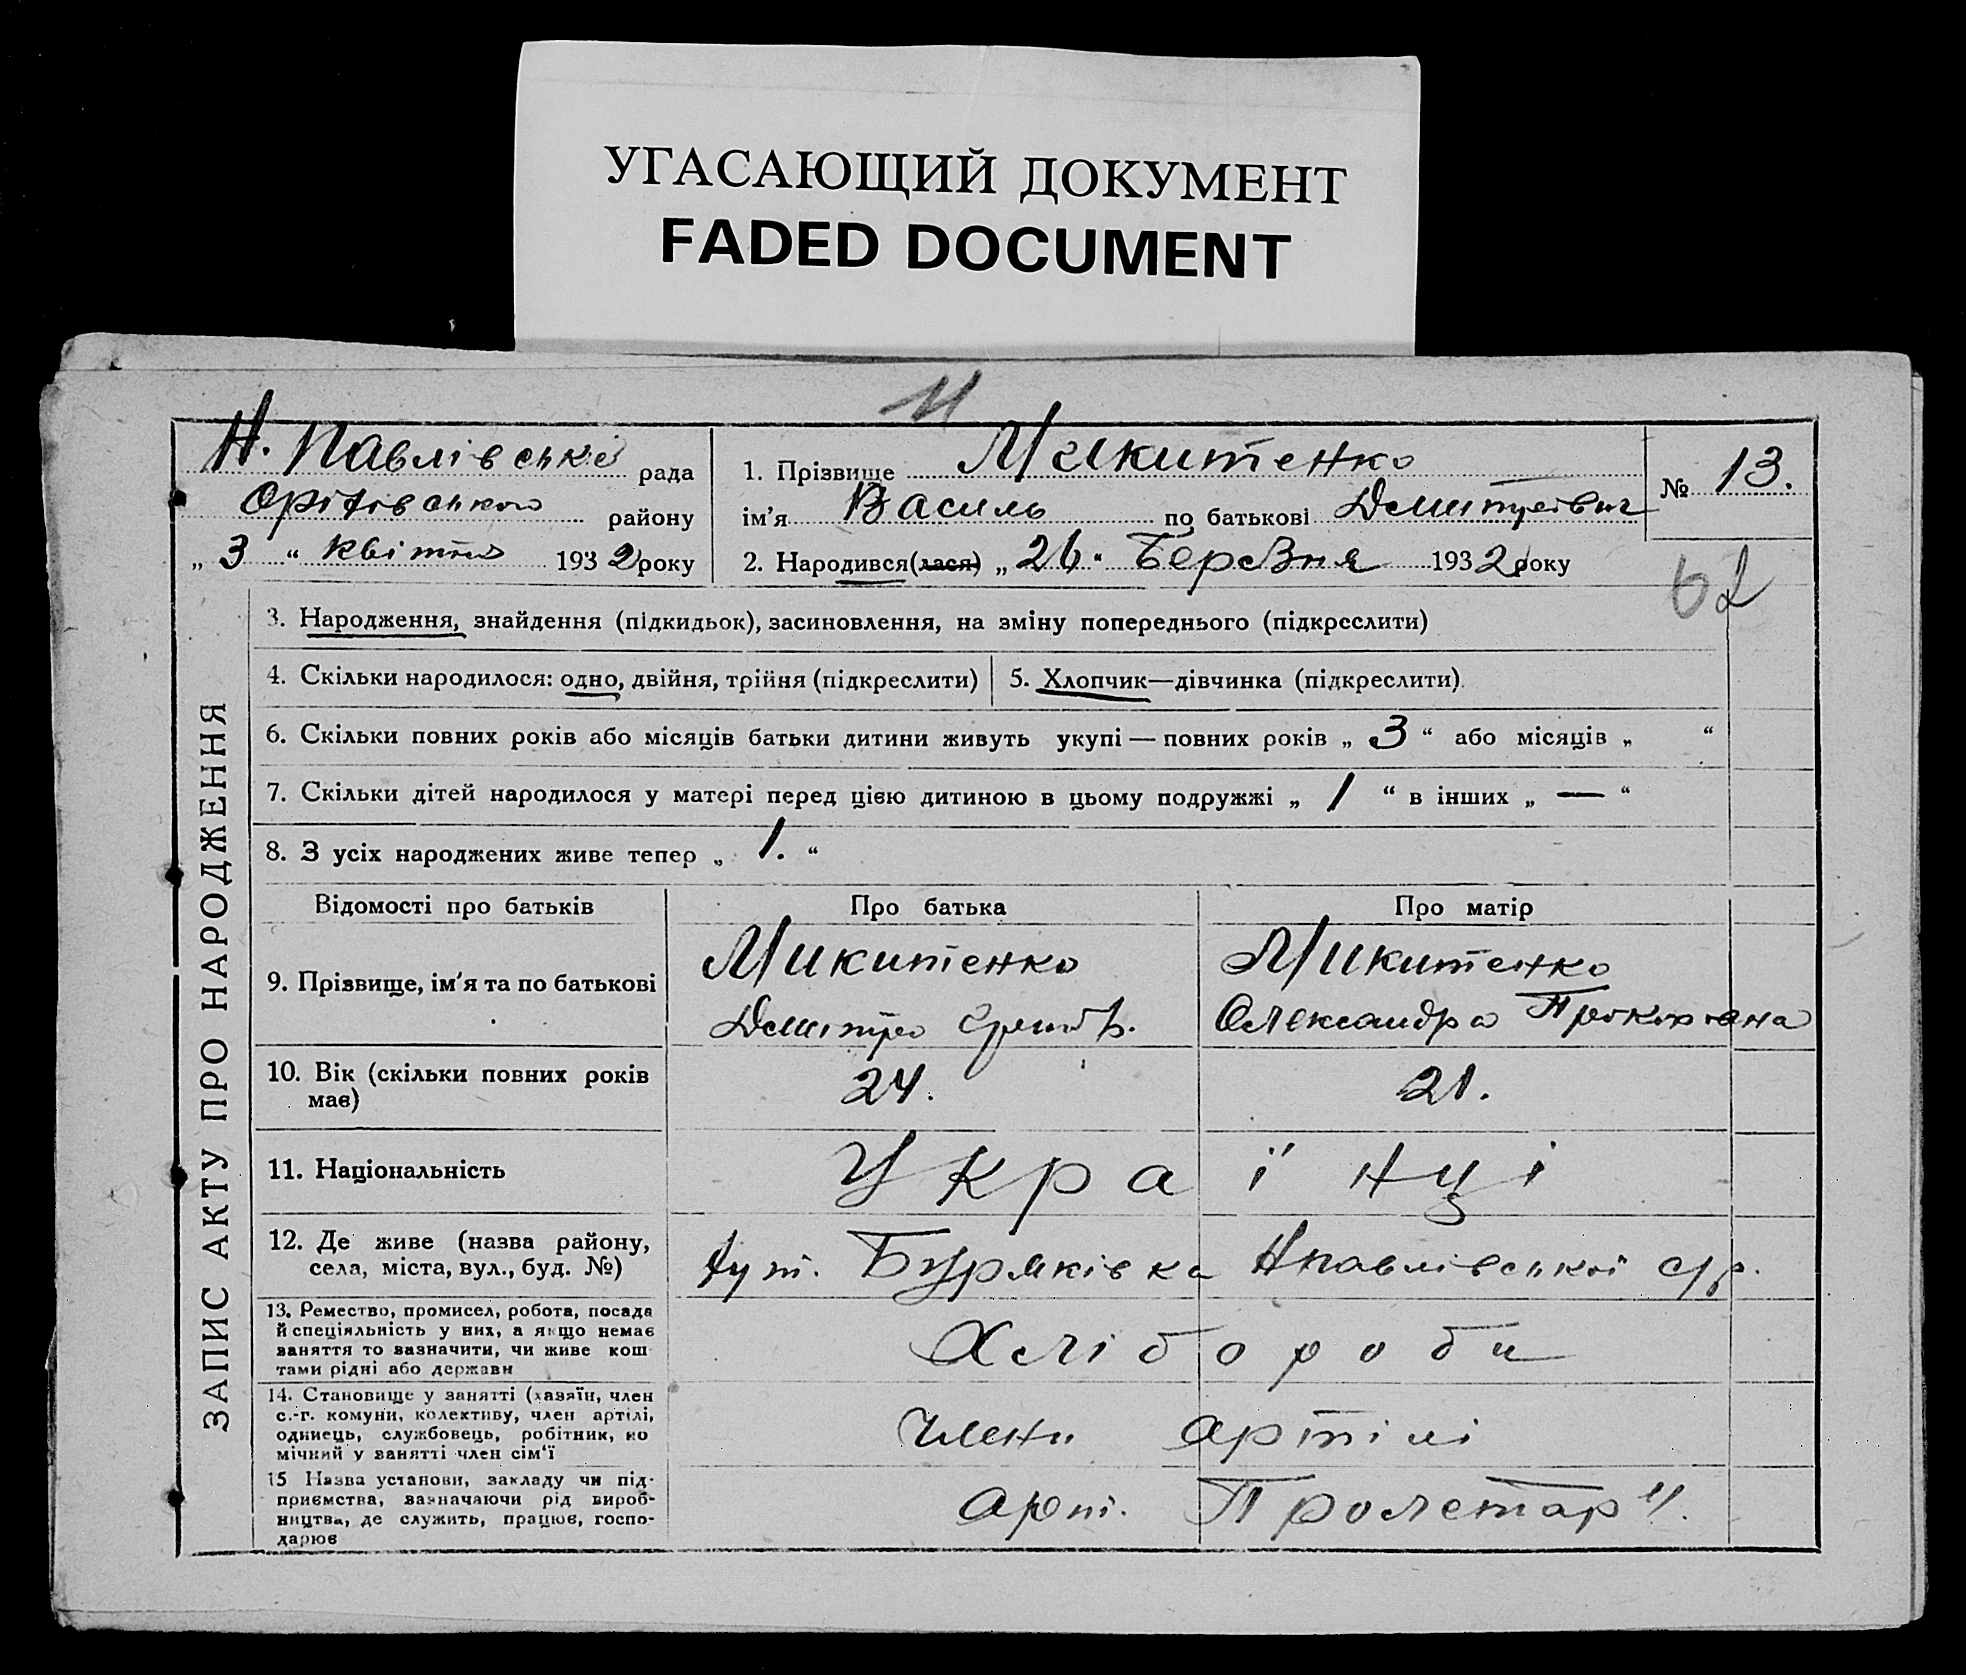 УГАСАЮЩИЙ ДОКУМЕНТ
FADED DOCUMENT
Н. Павлівська рада
Оріхівського району
„ 3 “ квітня 1932 року
1. Прізвище Микитенко
ім'я Василь по батькові Дмитрович
2. Народився(лася) „ 26 “ Березня 1932 року
№ 13.
62
ЗАПИС АКТУ ПРО НАРОДЖЕННЯ
3. Народження, знайдення (підкидьок), засиновлення, на зміну попереднього (підкреслити)
4. Скільки народилося: одно, двійня, трійня (підкреслити)
5. Хлопчик—дівчинка (підкреслити)
6. Скільки повних років або місяців батьки дитини живуть укупі — повних років „ 3 “ або місяців „ “
7. Скільки дітей народилося у матері перед цією дитиною в цьому подружжі „ 1 “ в інших „ — “
8. З усіх народжених живе тепер „ 1. “
Відомості про батьків Про батька Про матір
9. Прізвище, ім'я та по батькові
Микитенко
Дмитро
Микитенко
Олександра
10. Вік (скільки повних років має)
24. 21.
11. Національність
Українці
12. Де живе (назва району,
села, міста, вул., буд. №)
хут. Буряківка Нпавлівської с/р.
13. Ремество, промисел, робота, посада
й спеціяльність у них, а якщо немає
заняття то вазначити, чи живе кош
тами рідні або держави
Хлібороби
14. Становище у занятті (хазяїн, член
с.-г. комуни, колективу, член артілі,
одниець, службовець, робітник, по
мічний у занятті член сім'ї
члени артілі
15 Назва установи, закладу чи під-
приємства, зазначаючи рід вироб-
ництва, де служить, працює, госпо-
дарює
арт. Пролетар".